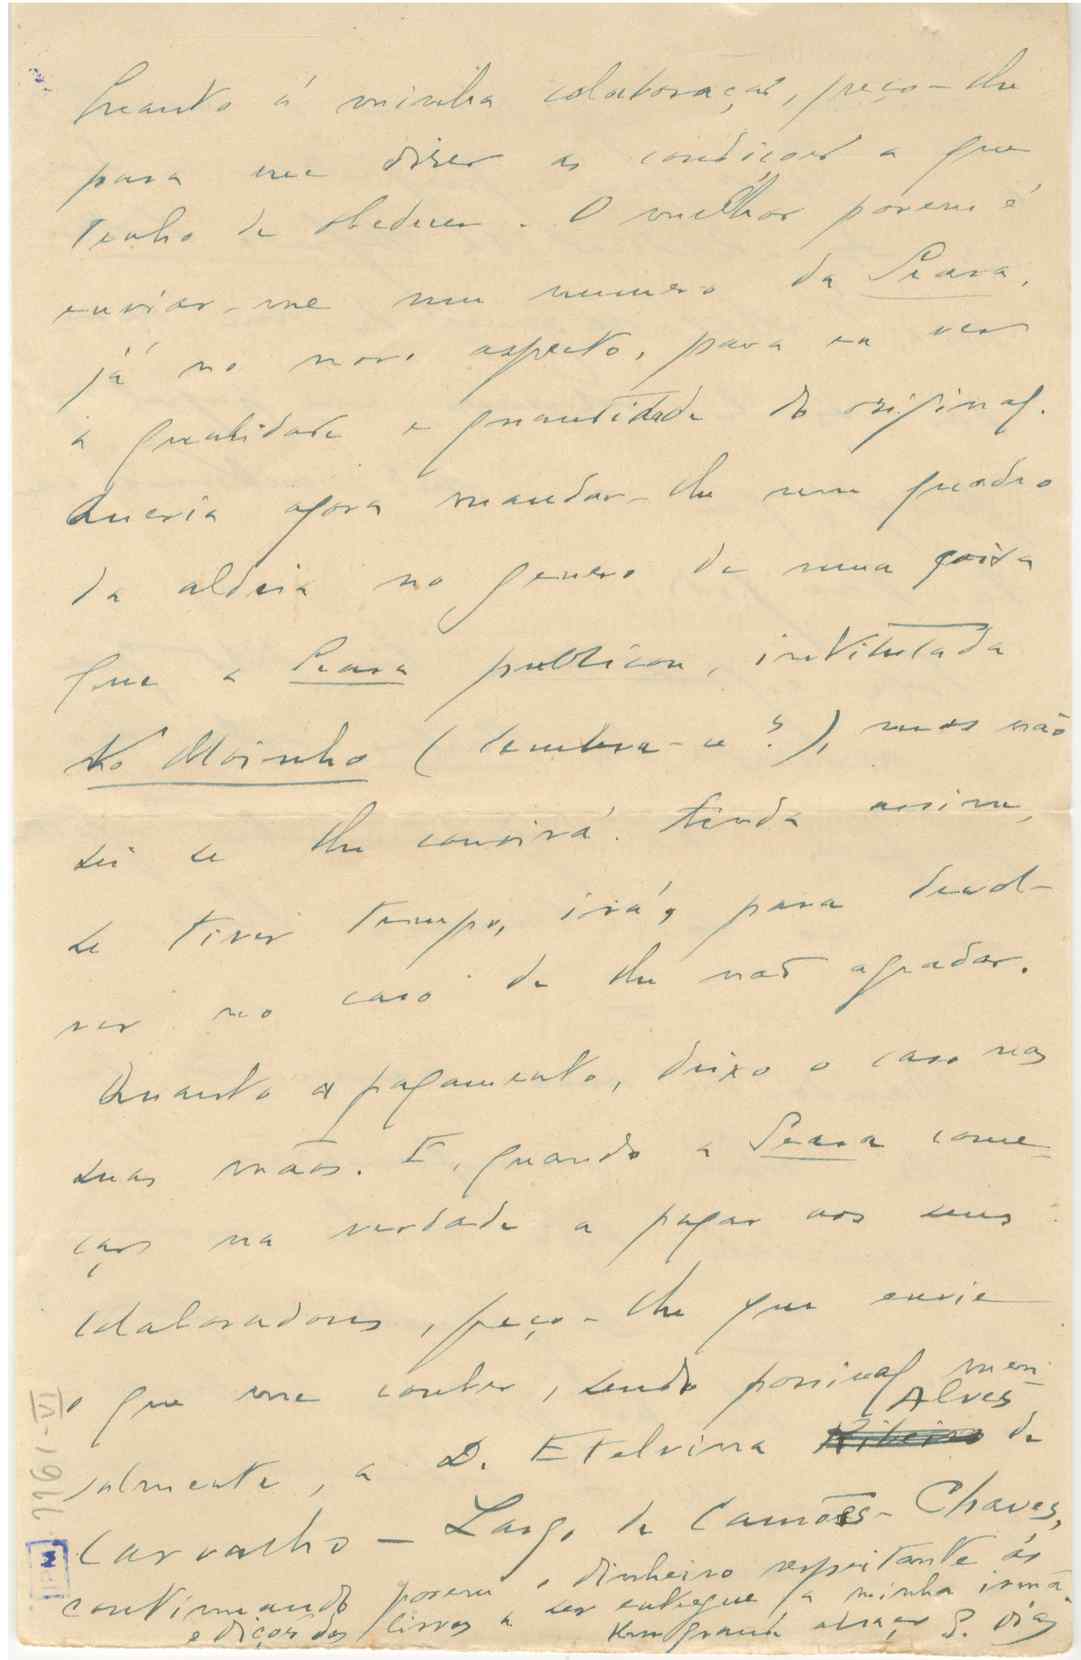 Quanto á minha colaboração, peço-lhe
para me dizer as condições a que
tenho de obedecer. O melhor porem é
enviar-me um numero da Seara,
já no novo aspecto, para eu ver
a qualidade e quantidade do original.
Queria agora mandar-lhe um quadro
da aldeia no genero de uma coisa
que a Seara publicou, intitulada
No Moinho (lembra-se?), mas não
sei se lhe convirá. Ainda assim,
se tiver tempo, irá, para devol-
ver no caso de lhe não agradar.
Quanto a pagamento, deixo o caso nas
suas mãos. E, quando a Seara come-
çar na verdade a pagar aos seus
colaboradores, peço-lhe que envie
o que me couber, sendo possivel men-
Alves
salmente, a D. Etelvina Ribeiro de
Carvalho – Largo de Camões – Chaves,
continuando porem o dinheiro respeitante ás
edições dos livros a ser entregue a minha irmã.
Um grande abraço S. Dias